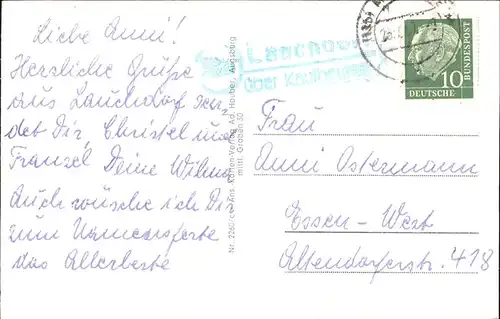 Liebe Anni!
Herzliche Grüße
aus Lauchdorf sen-
det Dir, Christel und
Franzel Deine Wilma
Auch wünsche ich Dir
zum
das Allerbeste
Lauchdorf
über Kaufbeuren
10
DEUTSCHE
BUNDESPOST
Ans. Karten-Verlag Ad. Houber, Augsburg
mittl. Graben 30
Frau
Anni Ostermann
Essen-West
Altendorferstr. 418